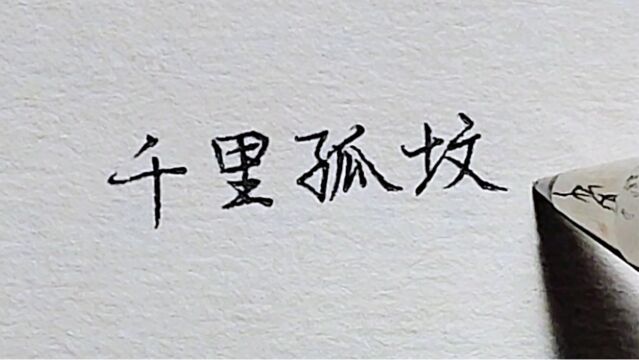 千里孤坟